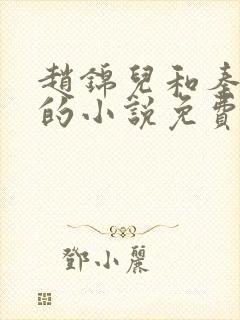 趙錦兒和秦
的小說免費
鄧小麗